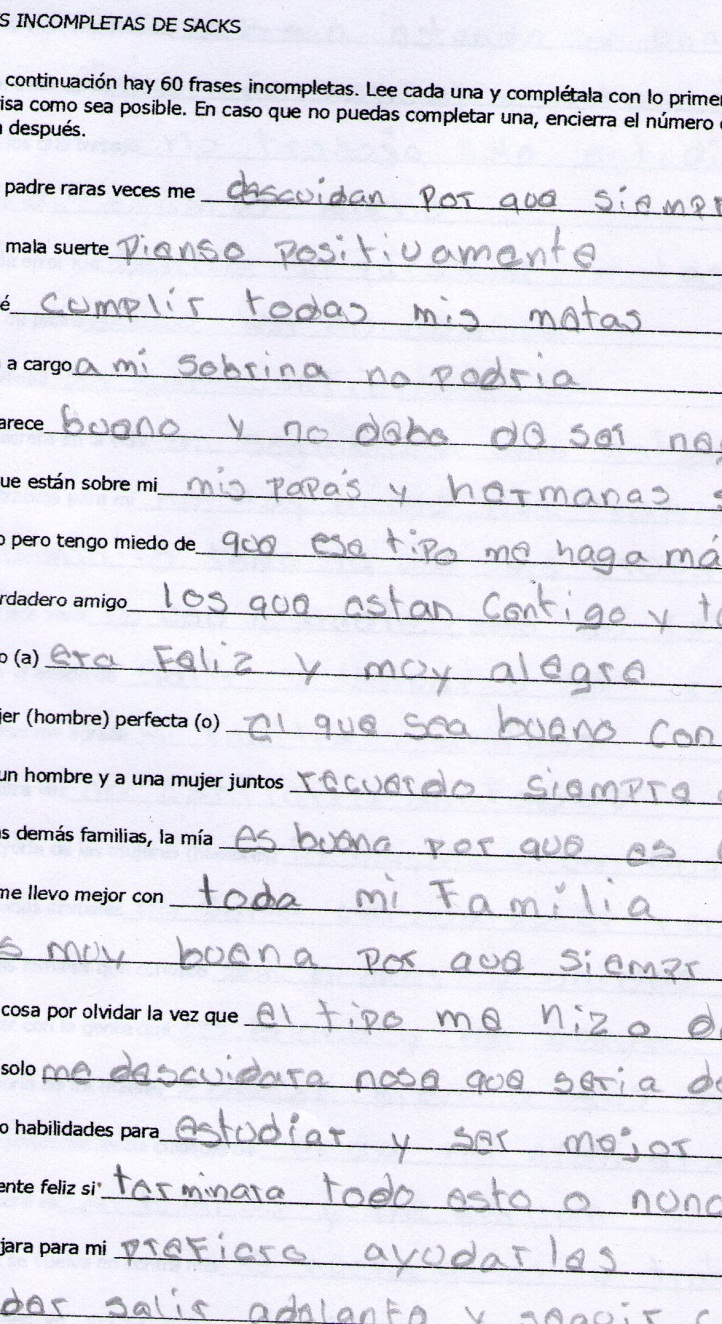 S INCOMPLETAS DE SACKS
continuación hay 60 frases incompletas. Lee cada una y complétala con lo primer
isa como sea posible. En caso que no puedas completar una, encierra el número
después.
padre raras veces me descuidan por que siempr
mala suerte pienso positivamente
é cumplir todas mis metas
a cargo a mi sobrina no podria
arece bueno y no debe de ser neg
ue están sobre mi mis papás y hermanas s
o pero tengo miedo de que ese tipo me haga má
rdadero amigo los que estan contigo y t
o (a) era feliz y muy alegre
jer (hombre) perfecta (o) el que sea bueno con
un hombre y a una mujer juntos recuerdo siempre
s demás familias, la mía es buena por que es
me llevo mejor con toda mi familia
s muy buena por que siempr
cosa por olvidar la vez que el tipo me hizo d
solo me descuidara nose que seria de
o habilidades para estudiar y ser mejor
ente feliz si terminara todo esto o nunc
jara para mi prefiero ayudarles
der salir adelante y seguir c